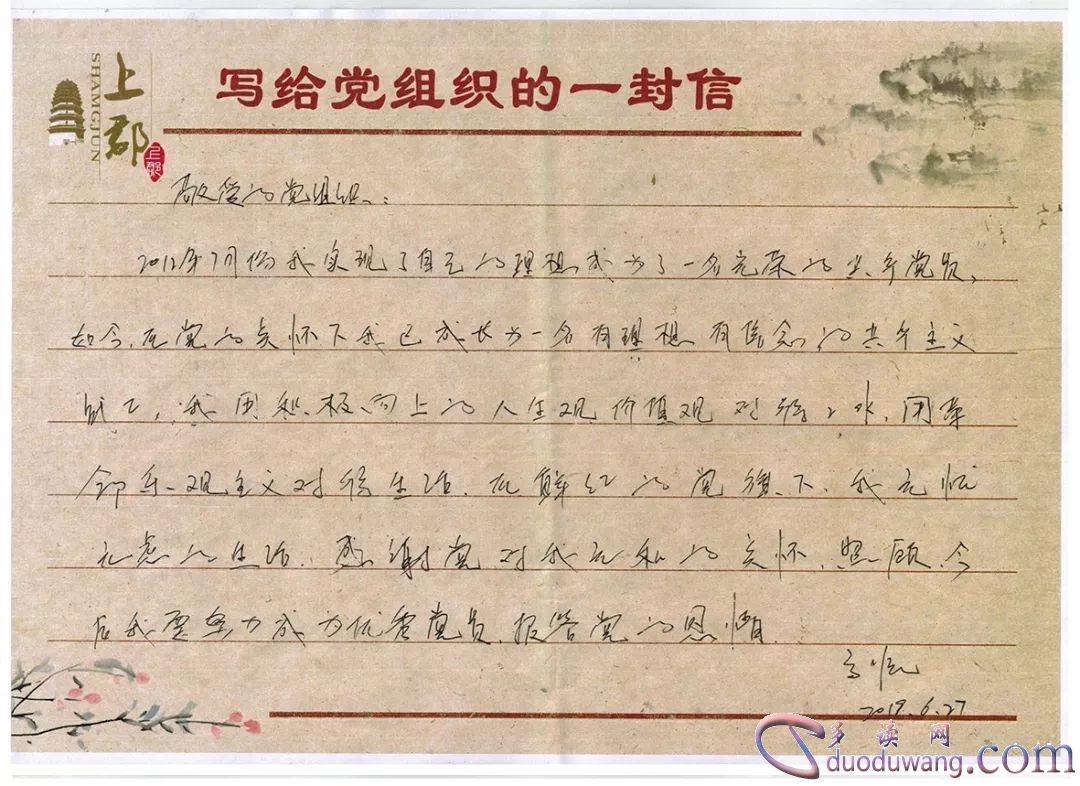 上郡
SHAMGJUN
上郡
写给党组织的一封信
敬爱的党组织:
2012年7月份我实现了自己的理想成为了一名光荣的共产党员,
如今,在党的关怀下我已成长为一名有理想有信念的共产主义
战士,我用积极向上的人生观价值观对待
乐观主义对待生活.在鲜红的党旗下,我无忧
无虑的生活.感谢党对我无私的关怀.照顾.今
后我要努力成为优秀党员.报答党的恩情.
2018.6.27
多读网
duoduwang.com